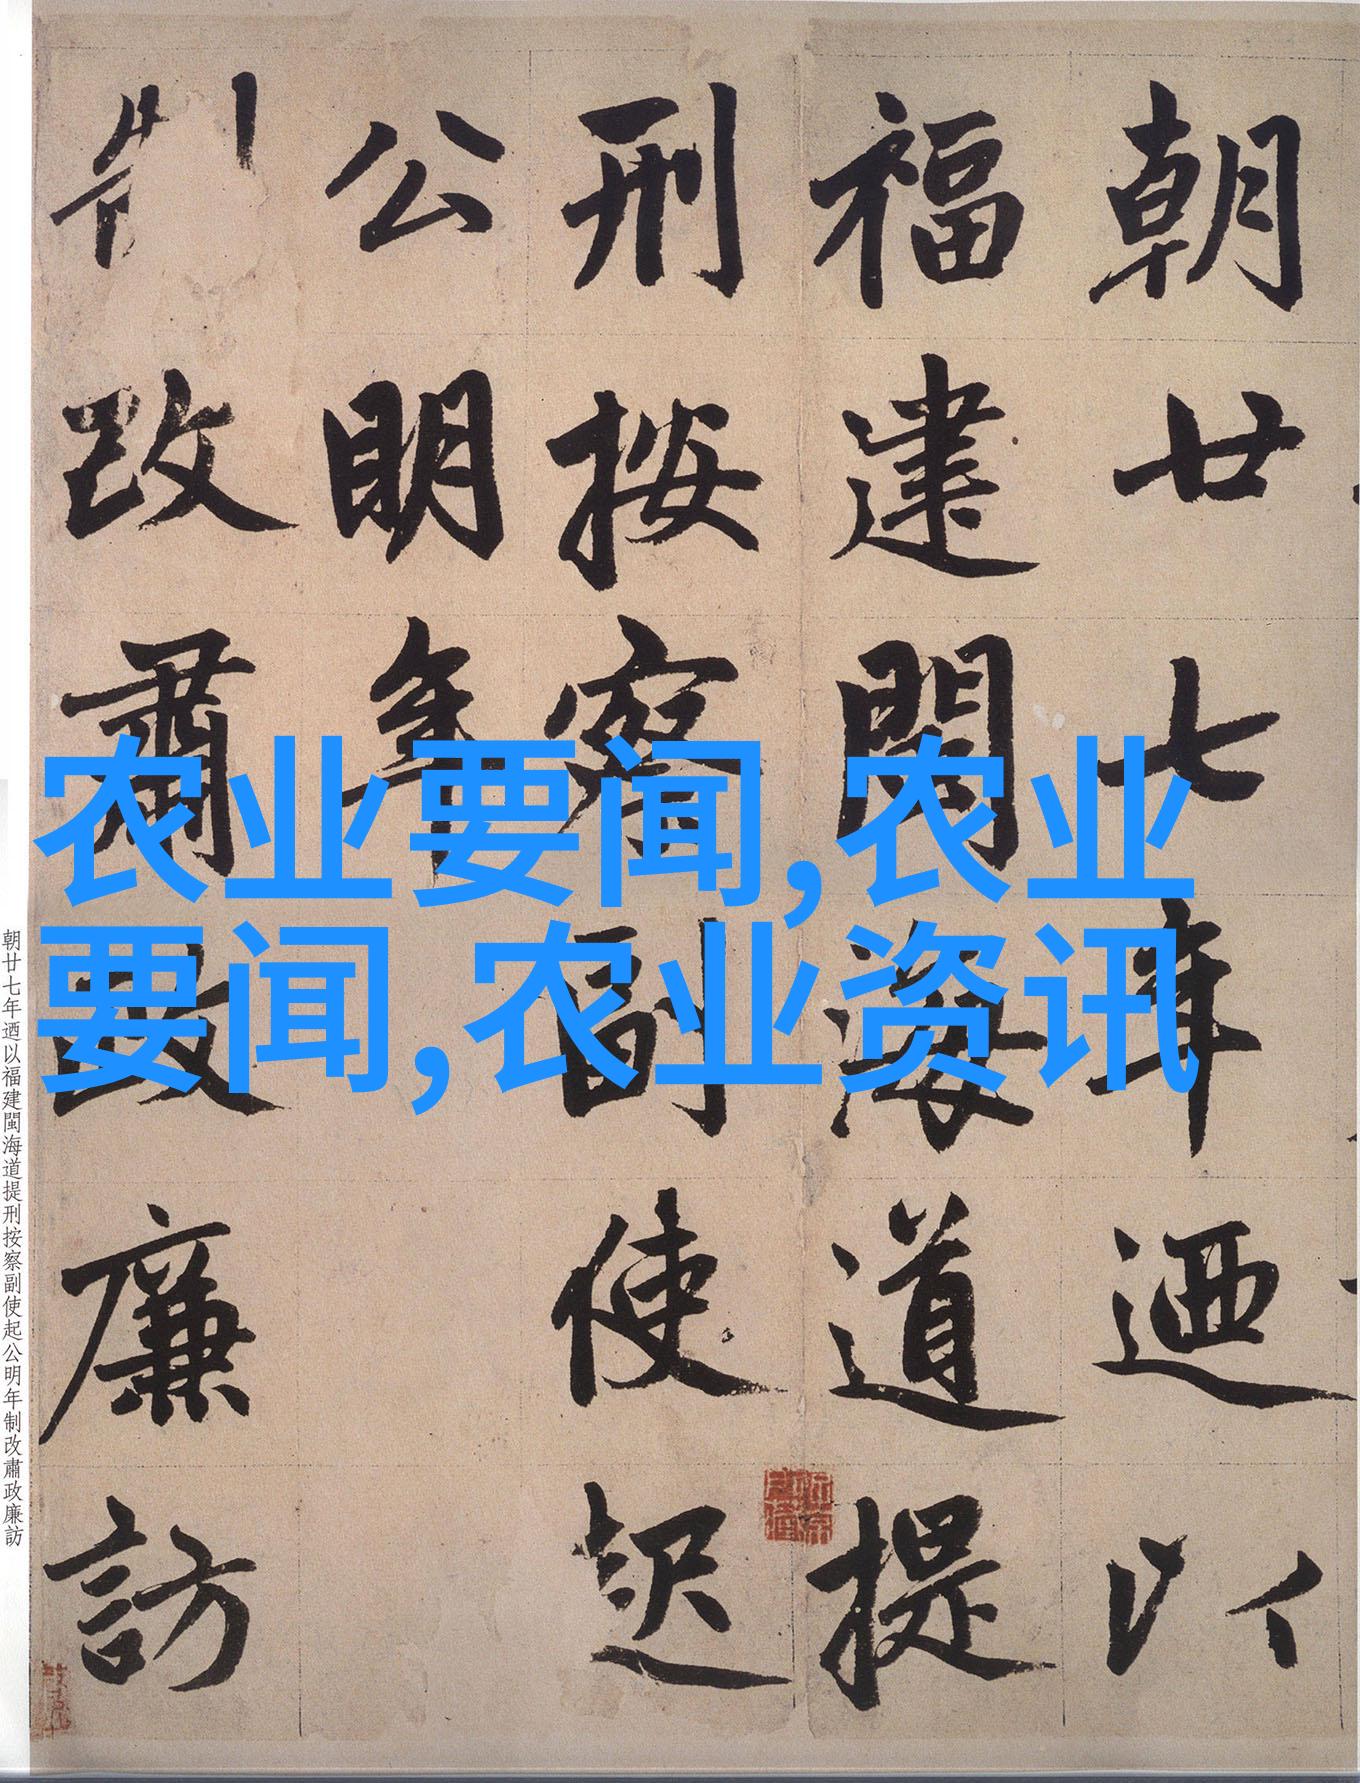 朝廿七年迺以
福建閩海道提
刑按察副使起
公明年
制改肅政廉訪
农业要闻,农业
要闻,农业资讯
朝廿七年迺以福建閩海道提刑按察副使起公明年制改肅政廉訪